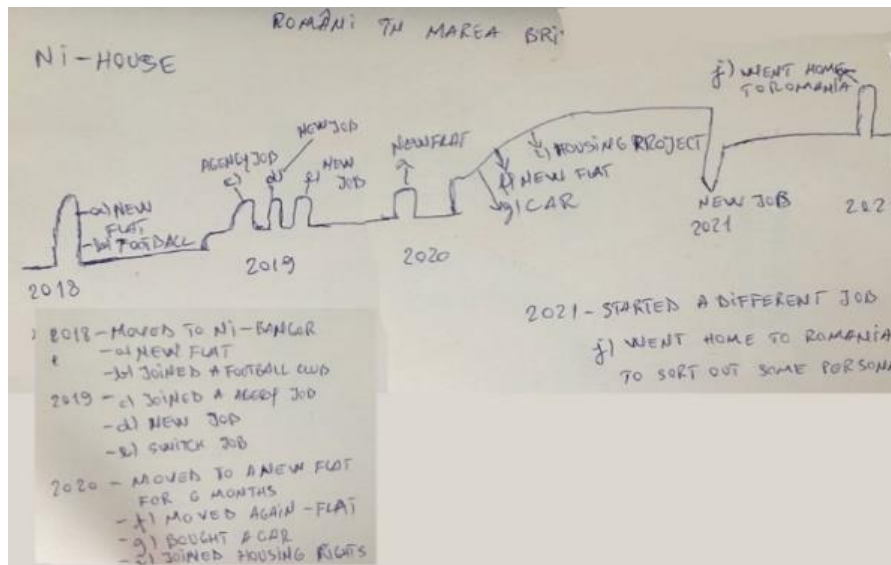 ROMÂNI ÎN MAREA BRI
Ni-HOUSE
a) NEW
FLAT
b) FOOTBALL
AGENCY JOB
c)
NEW JOB
d)
e) NEW
JOB
NEW FLAT
i) HOUSING PROJECT
f) NEW FLAT
g) CAR
j) WENT HOME
TO ROMANIA
NEW JOB
2018
2019
2020
2021
202
2018 - MOVED TO Ni-BANGOR
- a) NEW FLAT
- b) JOINED A FOOTBALL CLUB
2019 - c) JOINED A AGENY JOB
- d) NEW JOB
- e) SWITCH JOB
2020 - MOVED TO A NEW FLAT
FOR 6 MONTHS
- f) MOVED AGAIN - FLAT
- g) BOUGHT A CAR
JOINED HOUSING RIGHTS
2021 - STARTED A DIFFERENT JOB
j) WENT HOME TO ROMANIA
TO SORT OUT SOME PERSONA